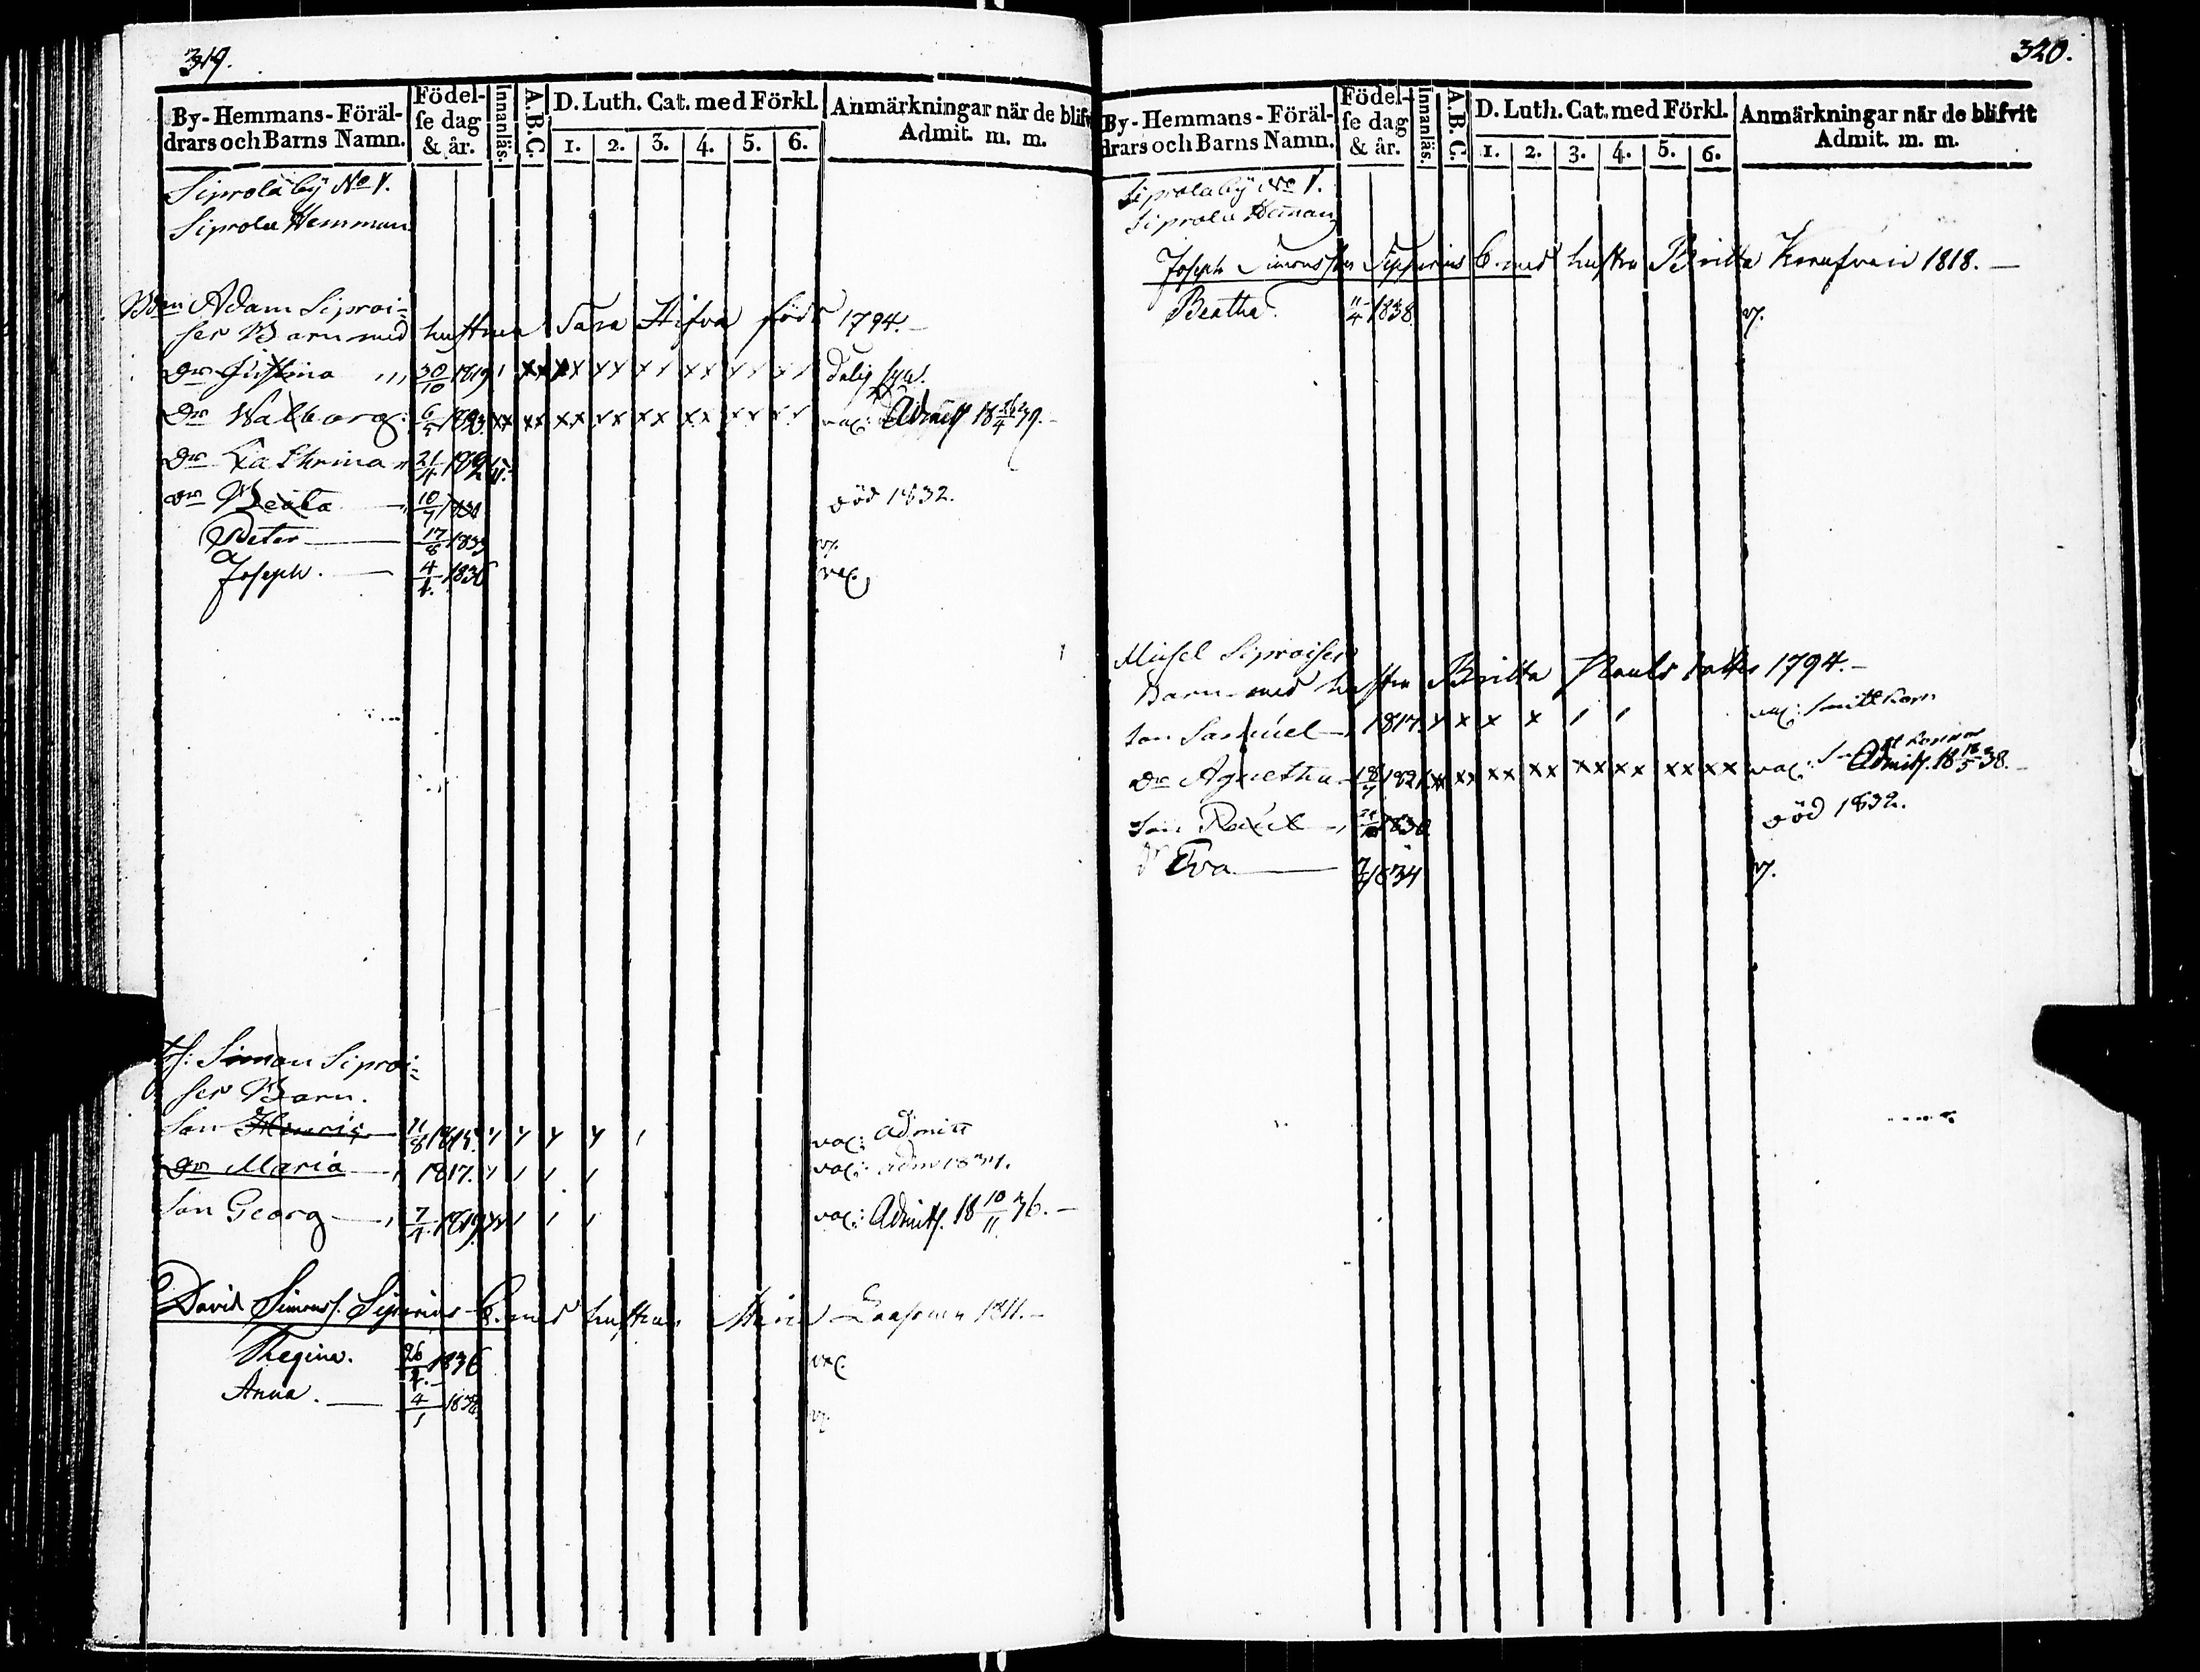 319.
By- Hemmans- Föräl-
drars och Barns Namn.
Födel-
se dag
& år.
Innanläs.
A.B.C.
D. Luth. Cat. med Förkl.
1. 2. 3. 4. 5. 6.
Anmärkningar när de blifv
Admit. m. m.
Siprola by No 1.
Siprola Hemman
Bdn Adam Siproi-
ses Barn med hustrun Sara Hifva född 1794.
Dr Justina 30/10 1819
Dr Walborg 6/5 1823 xx xx xx xx xx xx xx xx vac: Admitt 18 26/4 39.
Dr Cathrina 21/11
Dr Beata 10/7 död 1832.
Peter 17/8 1833 v.
Joseph. 4/1. 1836 vac.
Simon Siproi-
ses Barn.
Son Henric 11/8 1815 vac: Admitt
Dr Maria 1817. vac: Adm 1834.
Son Georg 7/4 1819 vac: Admitt. 18 10/11 36.
David Simonss. Siporius B. med hustrun Maria Laasonen 1811.
Regina. 26/4. 1836 vac.
Anna. 4/1 1838 v.
320.
By- Hemmans- Föräl-
drars och Barns Namn.
Födel-
se dag
& år.
Innanläs.
A.B.C.
D. Luth. Cat. med Förkl.
1. 2. 3. 4. 5. 6.
Anmärkningar när de blifvit
Admit. m. m.
Siprola by No 1.
Siprola Heman
Joseph Simonsson Sipporius B. med hustru Britta 1818.
Beatha. 11/4 1838. v.
Michel Siproises
Barn med hustru Britta Paulsdotter 1794.
Son Samuel 1817. x x x x 1 1 vac: smittkopor
Dr Agnetha 18/7 1821 xx xx xx xx xx xx xx xx vac: Admitt. 18 18/5 38.
Son Paul 1830 död 1832.
Dr Eva 1834 v.